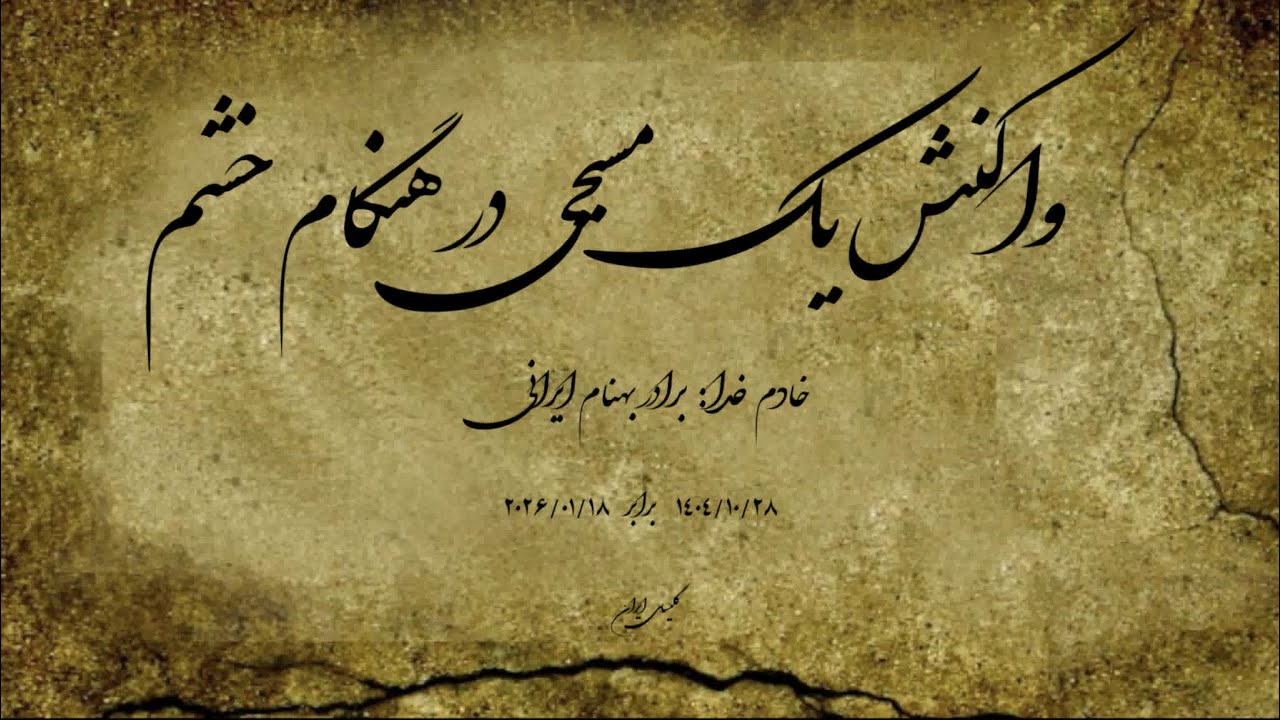 واکنش یک مسیحی در هنگام خشم
خادم خدا: برادر بهنام ایرانی
۱۴۰۴/۱۰/۲۸ برابر ۲۰۲۶/۰۱/۱۸
کلیسای ایران